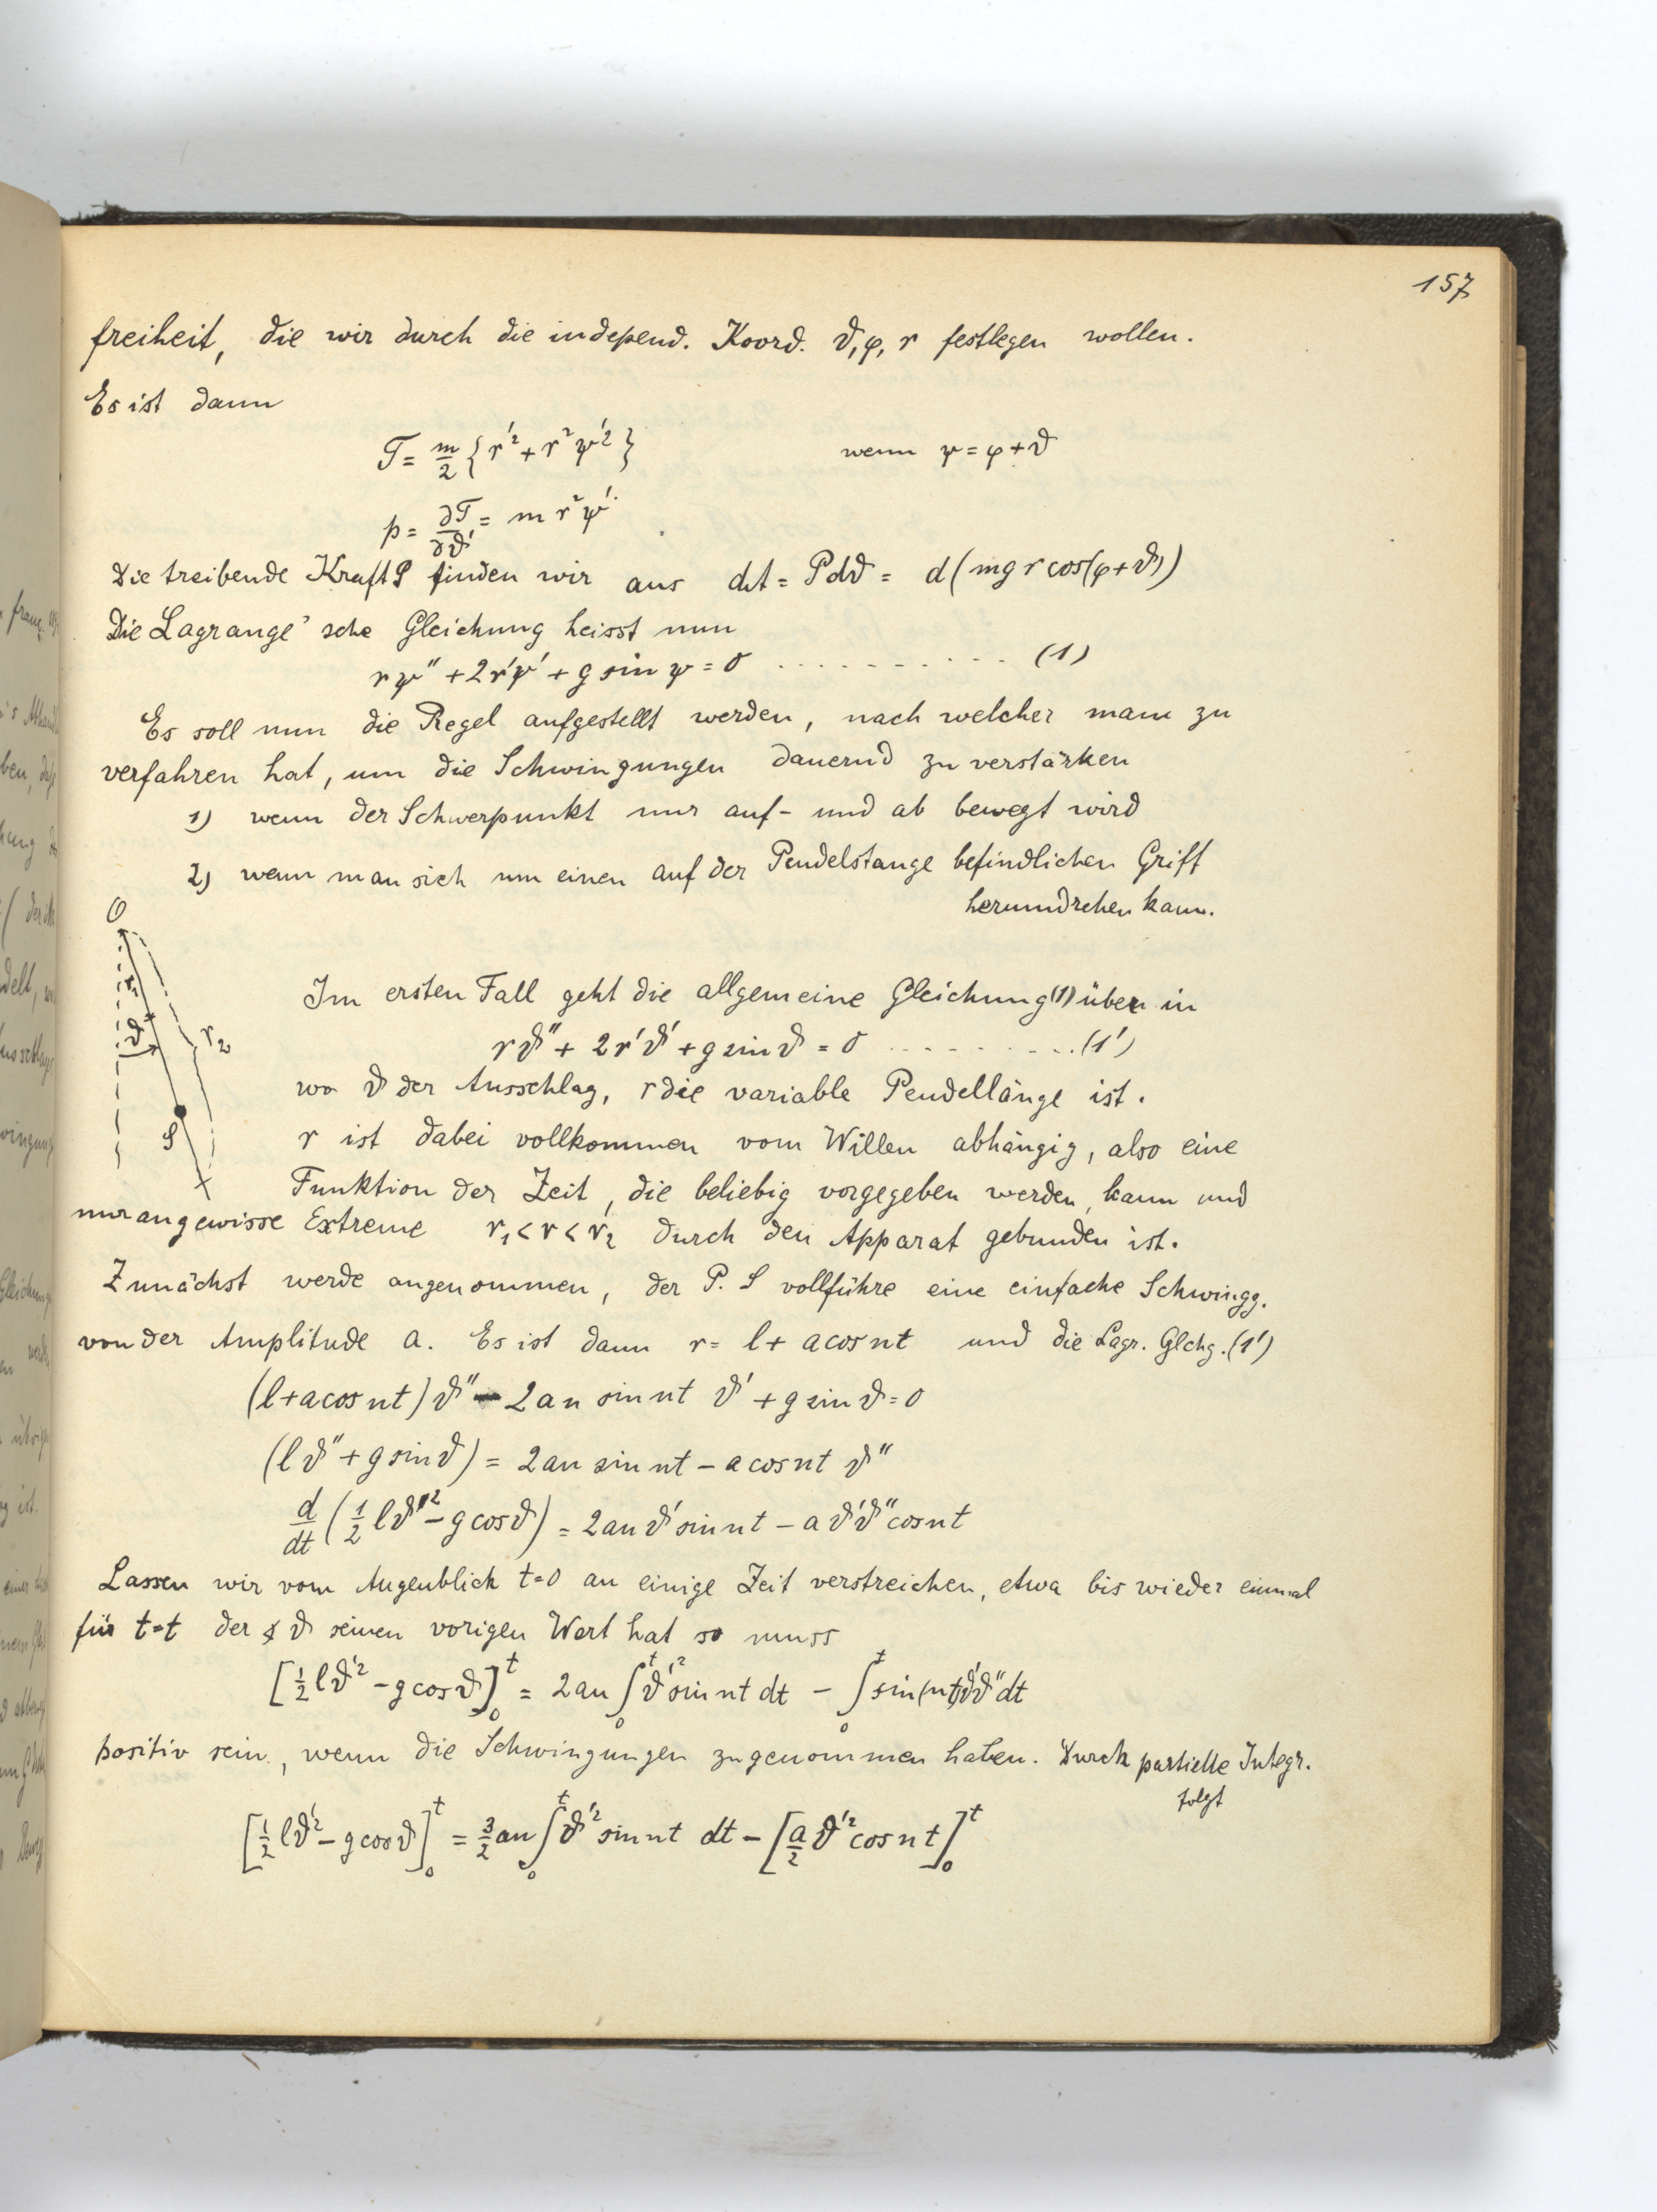 157
freiheit, die wir durch die independ. Koord. ϑ, φ, r festlegen wollen.
Es ist dann
T = m/2 {r'² + r² ψ'²} wenn ψ = φ + ϑ
p = ∂T/∂ϑ' = m r² ψ'
Die treibende Kraft P finden wir aus dA = Pdϑ = d(mg r cos(φ+ϑ))
Die Lagrange'sche Gleichung heisst nun
rψ'' + 2r'ψ' + g sin ψ = 0 ........... (1)
Es soll nun die Regel aufgestellt werden, nach welcher man zu
verfahren hat, um die Schwingungen dauernd zu verstärken
1) wenn der Schwerpunkt nur auf- und ab bewegt wird
2) wenn man sich um einen auf der Pendelstange befindlichen Griff
herumdrehen kann.
O
r₁
ϑ
r₂
S
Im ersten Fall geht die allgemeine Gleichung (1) über in
rϑ'' + 2r'ϑ' + g sin ϑ = 0 .......... (1')
wo ϑ der Ausschlag, r die variable Pendellänge ist.
r ist dabei vollkommen vom Willen abhängig, also eine
Funktion der Zeit, die beliebig vorgegeben werden kann und
nur an gewisse Extreme r₁ < r < r₂ durch den Apparat gebunden ist.
Zunächst werde angenommen, der P. S vollführe eine einfache Schwingg.
von der Amplitude a. Es ist dann r = l + a cos nt und die Lagr. Glchg. (1')
(l + a cos nt) ϑ'' - 2an sin nt ϑ' + g sin ϑ = 0
(lϑ'' + g sin ϑ) = 2an sin nt - a cos nt ϑ''
d/dt (1/2 lϑ'² - g cos ϑ) = 2an ϑ' sin nt - a ϑ'ϑ'' cos nt
Lassen wir vom Augenblick t=0 an einige Zeit verstreichen, etwa bis wieder einmal
für t=t der ∢ ϑ seinen vorigen Wert hat so muss
[1/2 lϑ'² - g cos ϑ]₀ᵗ = 2an ∫₀ᵗ ϑ'² sin nt dt - ∫₀ᵗ sin(nt)ϑ'ϑ'' dt
positiv sein, wenn die Schwingungen zugenommen haben. Durch partielle Integr.
folgt
[1/2 lϑ'² - g cos ϑ]₀ᵗ = 3/2 an ∫₀ᵗ ϑ'² sin nt dt - [a/2 ϑ'² cos nt]₀ᵗ